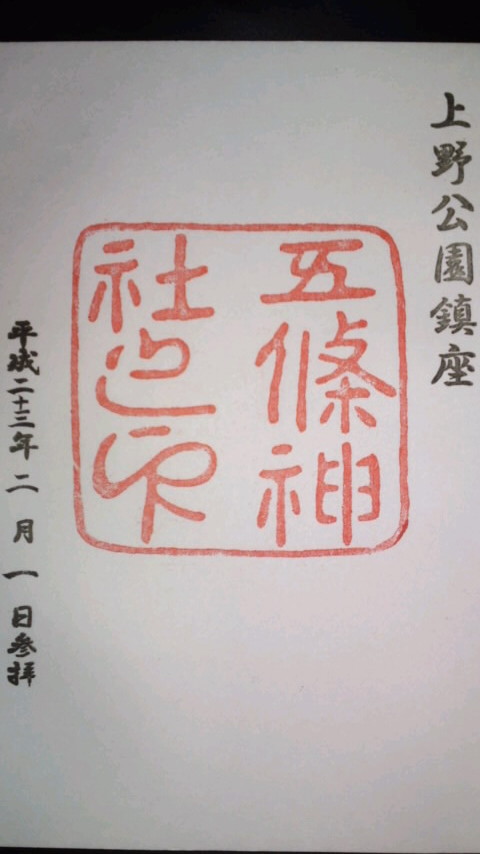 上野公園鎮座
五條神
社之印
平成二十三年二月一日参拝